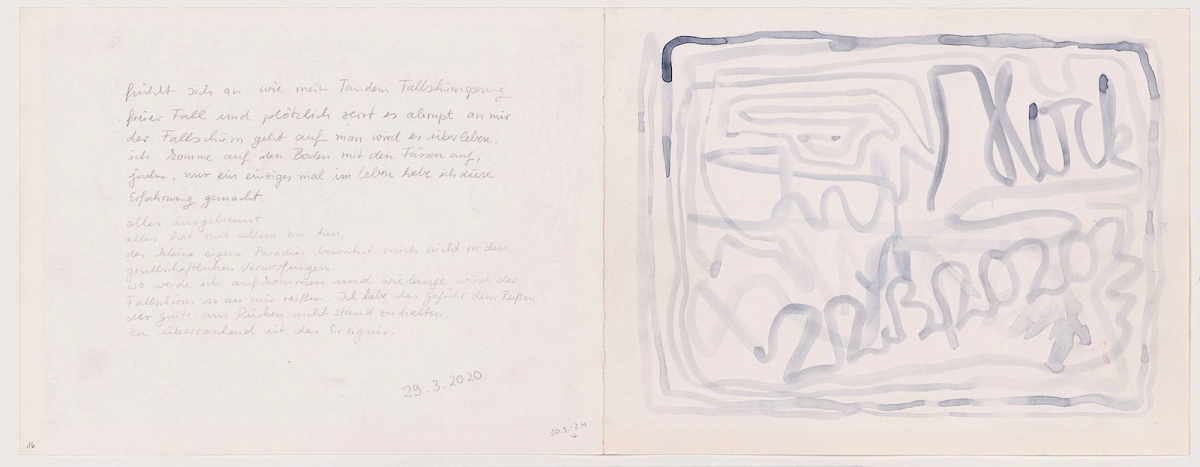 fühlt sich an wie mein Tandem Fallschirmsprung
freier Fall und plötzlich zerrt es abrupt an mir
der Fallschirm geht auf man wird es überleben,
ich komme auf den Boden mit den Füssen auf,
juche, nur ein einziges mal im leben habe ich diese
Erfahrung gemacht.
alles ausgebremst
alles hat mit allem zu tun,
das kleine eigene Paradies bewahrt mich nicht vor den
gesellschaftlichen Verwerfungen
wo werde ich aufkommen und wie lange wird der
Fallschirm so an mir reißen. Ich habe das Gefühl dem Reißen
der Gurte am Rücken nicht stand zu halten.
Zu überraschend ist das Ereignis.
29.3.2020
30.3.-2.4
16